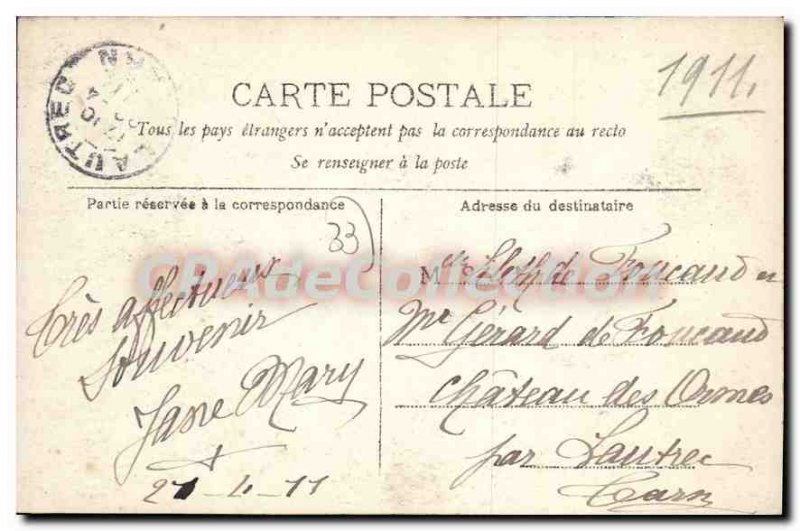 LAUTREC
TARN
1911.
CARTE POSTALE
Tous les pays étrangers n'acceptent pas la correspondance au recto
Se renseigner à la poste
Partie réservée à la correspondance
Adresse du destinataire
33
CPAdeCollection
Très affectueux
Souvenir
Mary
21-4-11
de Foucaud et
Me Gérard de Foucaud
Château des Ormes
par Lautrec
Tarn